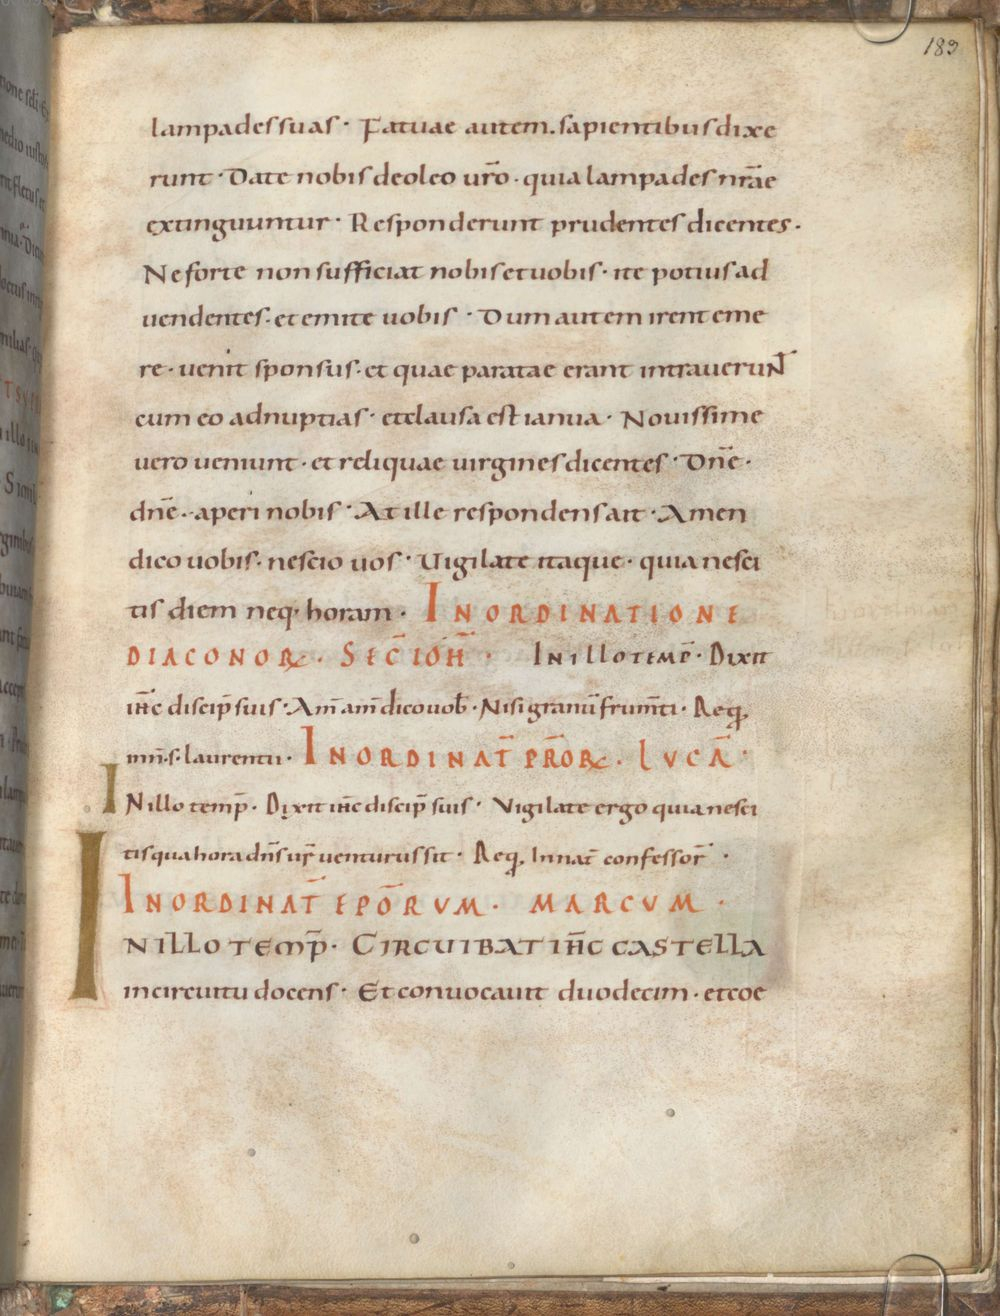 183
lampades suas · Fatuae autem . sapientibus dixe
runt · Date nobis de oleo ur̅o · quia lampades nr̅ae
extinguuntur · Responderunt prudentes dicentes ·
Ne forte non sufficiat nobis et uobis · ite potius ad
uendentes · et emite uobis · Dum autem irent eme
re · uenit sponsus · et quae paratae erant intrauerunt
cum eo ad nuptias · et clausa est ianua · Nouissime
uero ueniunt · et reliquae uirgines dicentes · Dn̅e ·
dn̅e · aperi nobis · At ille respondens ait · Amen
dico uobis · nescio uos · Uigilate itaque · quia nesci
tis diem neq· horam · IN ORDINATIONE
DIACONORꝜ · SEC̅ IOH̅ · IN illo temp̅ · Dixit
ih̅c discip̅ suis · Am̅ am̅ dico uob̅ · Nisi granu̅ frum̅ti · Req̛
in n̅ · s · laurentii · IN ORDINAT̅ PR̅ORꝜ · LUCA̅ ·
IN illo temp̅ · Dixit ih̅c discip̅ suis · Vigilate ergo quia nesci
tis qua hora dn̅s ur̅ uenturus sit · Req̛ In nat̅ confessor̅ ·
IN ORDINAT̅ EPO̅RVM · MARCVM ·
IN ILLO TEMP̅ · CIRCUIBAT IH̅C CASTELLA
in circuitu docens · Et conuocauit duodecim · et coe